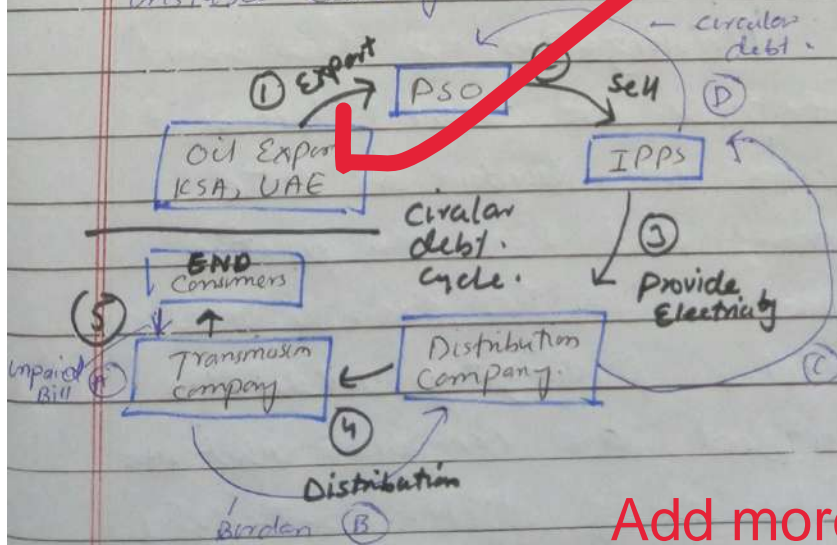 circular
debt.
① Export
PSO
②
Sell
Ⓓ
Oil Expor
KSA, UAE
IPPS
Circular
debt.
cycle.
③
Provide
Electricity
END
Consumers
⑤
Unpaid
Bill Ⓐ
Transmission
company
Distribution
Company.
Ⓒ
④
Distribution
Burden Ⓑ
Add more